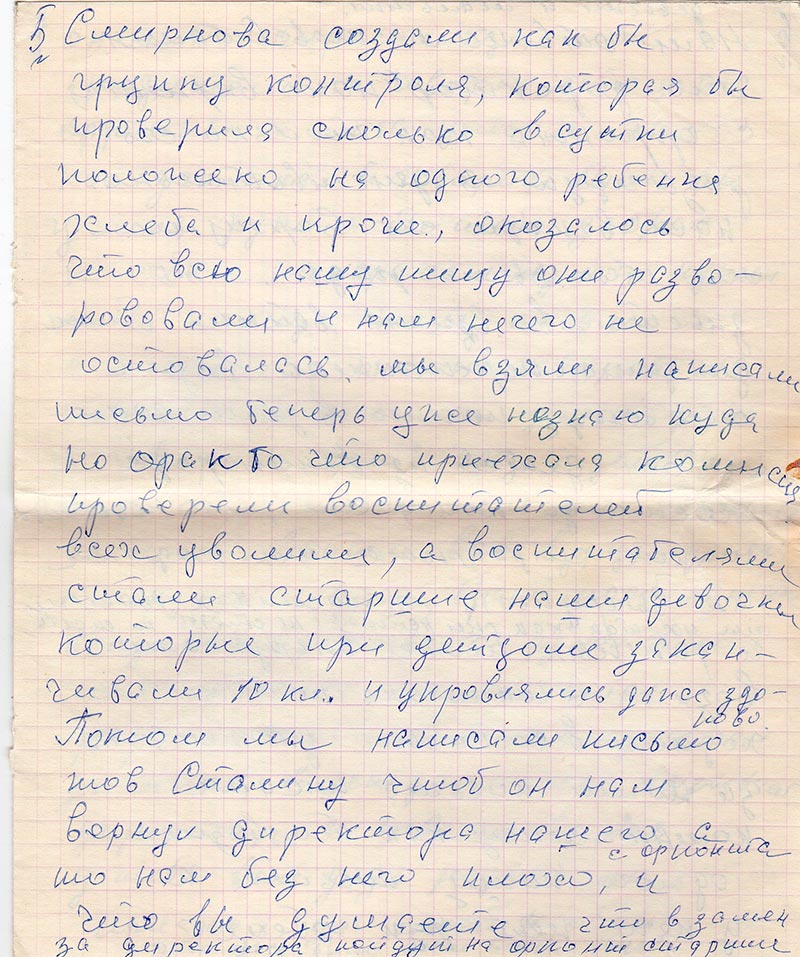 5 Смирнова создали как бы
группу контроля, которая бы
проверила сколько в сутки
положено на одного ребенка
хлеба и проче., окозалось
что всю нашу пищу они разво-
рововали и нам нечего не
остовалась. мы взяли написали
письмо теперь уже незнаю куда
но факт то что приехала комисия
проверели воспитателей
всех уволили, а воспитателями
стали старшие наши девочки
которые при детдоме закан-
чивали 10 кл. и упровлялись даже здо-
рово.
Потом мы написали письмо
тов Сталину чтоб он нам
вернул директора нашего
с фронта а
то нам без него плохо, и
что вы думаете что взамен
за директора пойдут на фронт старшие